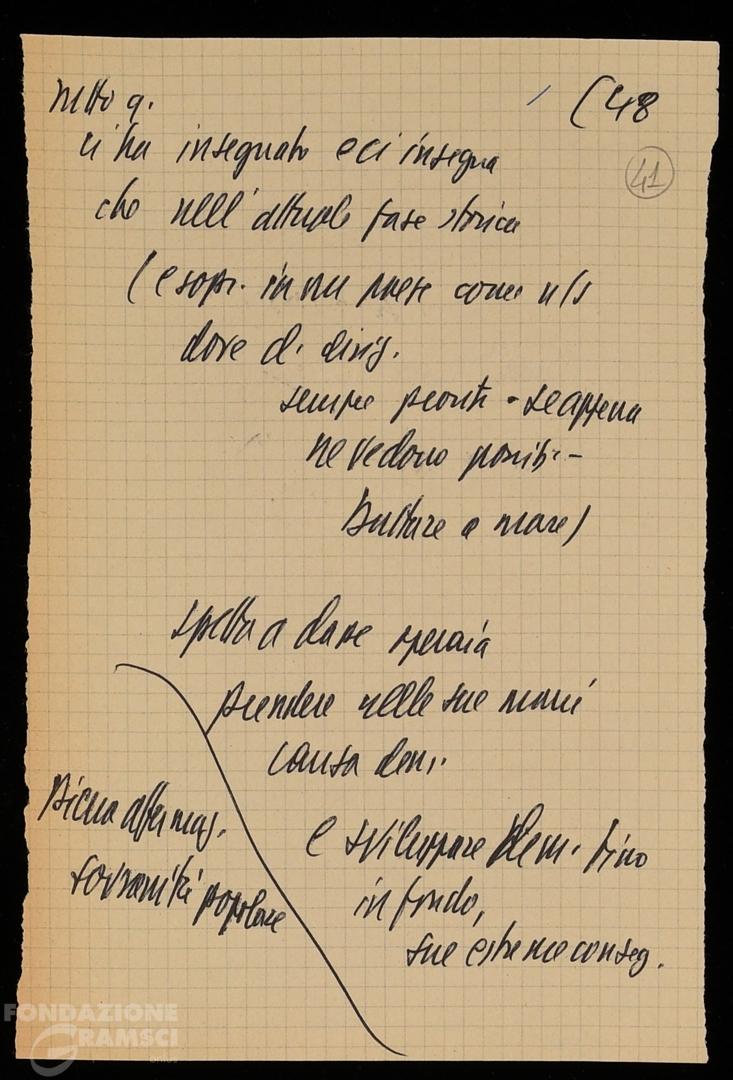 (48
41
tutto q.
ci ha insegnato e ci insegna
che nell'attuale fase storica
(e sopr. in un paese come n/s
dove cl. dirig.
sempre pronti - se appena
ne vedono possib. -
buttare a mare)
spetta a classe operaia
prendere nelle sue mani
causa dem.
e sviluppare dem. fino
in fondo,
sue estreme conseg.
piena affermaz.
sovranità popolare
FONDAZIONE
GRAMSCI
onlus